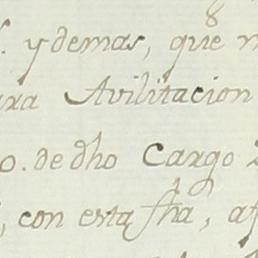 y demas, qe.
ara Avilitacion
o. de dho Cargo
, con esta fha,